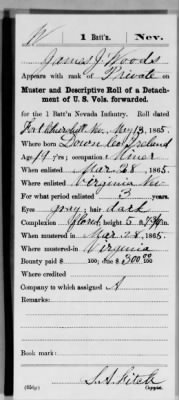 W | 1 Batt'n. | Nev.
James J Woods
Appears with rank of Private on
Muster and Descriptive Roll of a Detachment of U. S. Vols. forwarded.
for the 1 Batt'n Nevada Infantry. Roll dated
Fort Churchill Nv, May 13, 1865.
Where born Down Co Ireland
Age 19 y'rs; occupation Miner
When enlisted Mar 28, 1865.
Where enlisted Virginia Nv
For what period enlisted 3 years.
Eyes gray; hair dark
Complexion ; height 5 ft. in.
When mustered in Mar 28, 1865.
Where mustered in Virginia
Bounty paid $ 100; due $ 300 00/100
Where credited
Company to which assigned A
Remarks:
Book mark:
S. A. Fitch
(356g) Copyist.